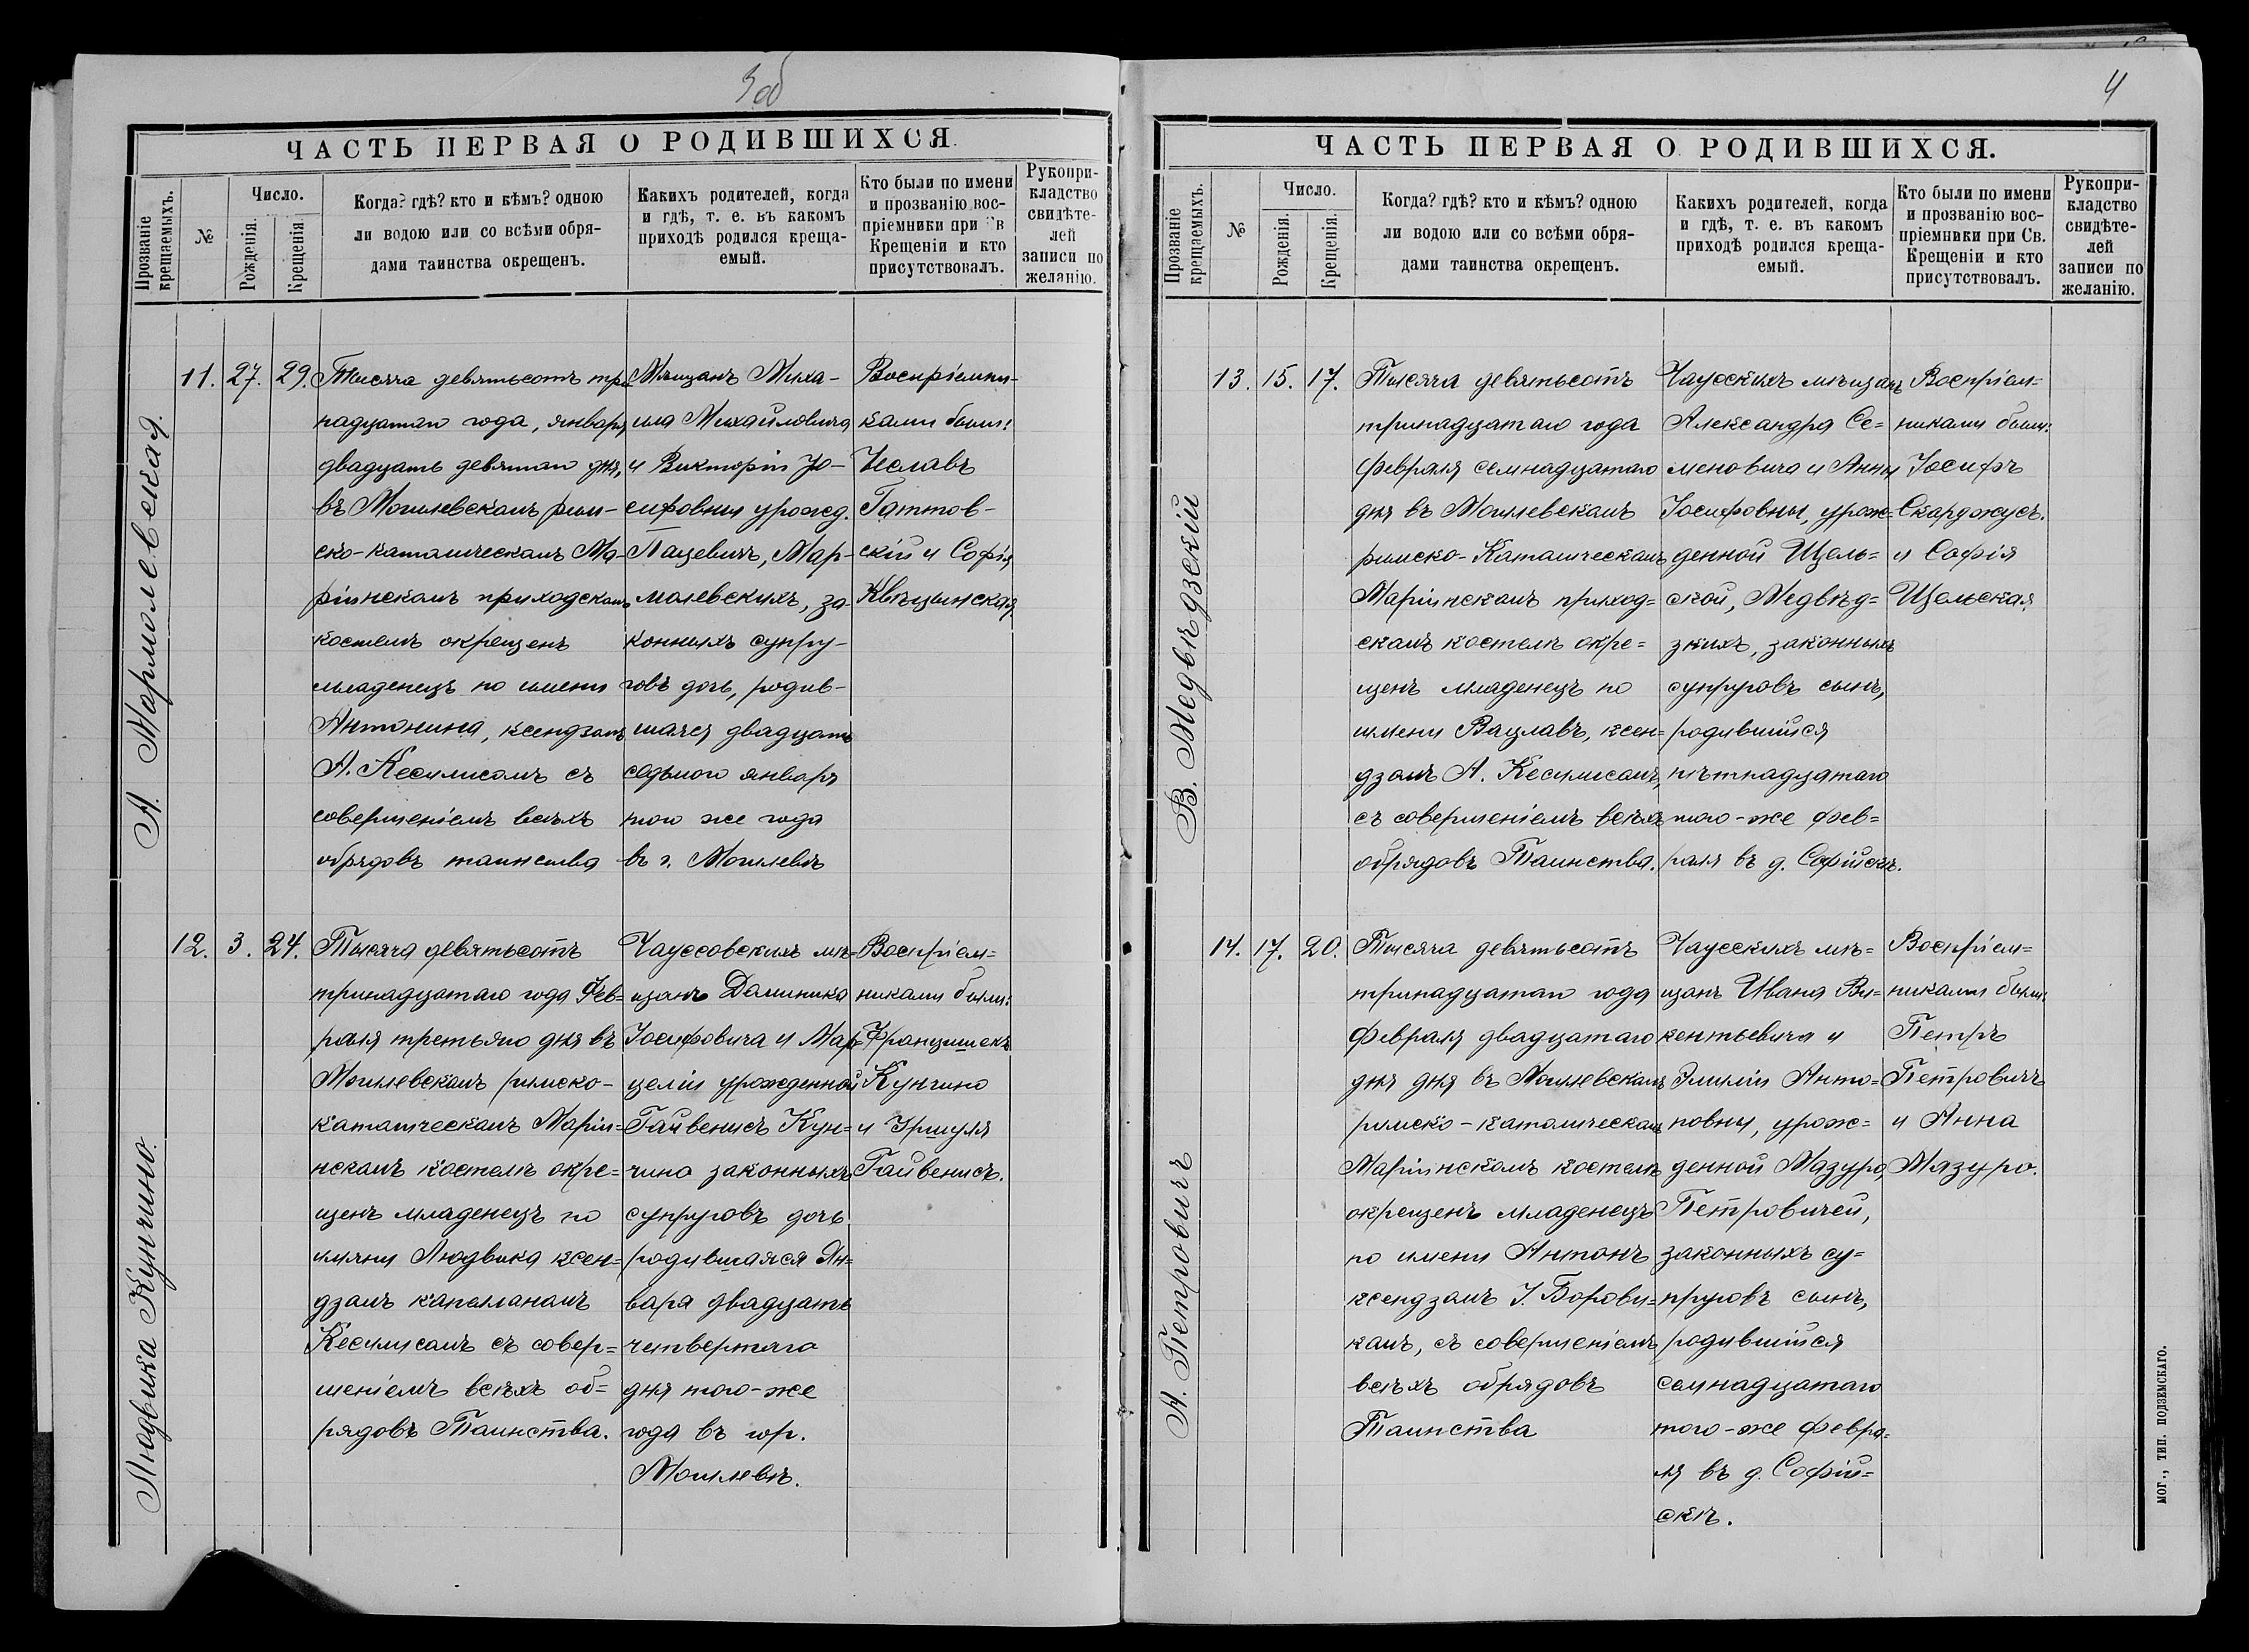 3об
ЧАСТЬ ПЕРВАЯ О РОДИВШИХСЯ.
Прозваніе крещаемыхъ.
№
Число.
Рожденія.
Крещенія.
Когда? гдѣ? кто и кѣмъ? одною
ли водою или со всѣми обря-
дами таинства окрещенъ.
Какихъ родителей, когда
и гдѣ, т. е. въ какомъ
приходѣ родился креща-
емый.
Кто были по имени
и прозванію вос-
пріемники при в
Крещеніи и кто
присутствовалъ.
Рукопри-
кладство
свидѣте-
лей
записи по
желанію.
А. Мармолевская.
11.
27.
29.
Тысяча девятьсотъ три
надцатаго года, января
двадцать девятаго дня,
въ Могилевскомъ рим-
ско-католическомъ Ма-
ріинскомъ приходскомъ
костелѣ окрещенъ
младенецъ по имени
Антонина, ксендзомъ
А. Кесилисомъ съ
совершеніемъ всѣхъ
обрядовъ таинства
Мѣщанъ Миха-
ила Михайловича
и Викторіи Іо-
сифовны урожд.
Пацевичъ, Мар-
молевскихъ, за-
конныхъ супру-
говъ дочь, родив-
шаяся двадцать
седьмого января
того же года
въ г. Могилевѣ
Воспріемни-
ками были:
Чеславъ
Гаттов-
скій и Софія
Квѣцынская.
Людвика Кунчино.
12.
3.
24.
Тысяча девятьсотъ
тринадцатаго года Фев=
раля третьяго дня въ
Могилевскомъ римско-
католическомъ Маріи=
нскомъ костелѣ окре=
щенъ младенецъ по
имяни Людвика ксен=
дзомъ капеланомъ
Кесилисомъ съ совер=
шеніемъ всѣхъ об=
рядовъ Таинства.
Чауссовскихъ мѣ=
щанъ Доминика
Іосифовича и Мар=
целіи урожденной
Гайвенисъ Кун=
чино законныхъ
супруговъ дочь
родившаяся Ян=
варя двадцать
четвертаго
дня того-же
года въ гор.
Могилевѣ.
Воспріем=
никами были:
Францишекъ
Кунчино
и Уршуля
Гайвенисъ.
4
ЧАСТЬ ПЕРВАЯ О РОДИВШИХСЯ.
Прозваніе крещаемыхъ.
№
Число.
Рожденія.
Крещенія.
Когда? гдѣ? кто и кѣмъ? одною
ли водою или со всѣми обря-
дами таинства окрещенъ.
Какихъ родителей, когда
и гдѣ, т. е. въ какомъ
приходѣ родился креща-
емый.
Кто были по имени
и прозванію вос-
пріемники при Св.
Крещеніи и кто
присутствовалъ.
Рукопри-
кладство
свидѣте-
лей
записи по
желанію.
В. Медвѣдзскій
13.
15.
17.
Тысяча девятьсотъ
тринадцатаго года
Февраля семнадцатаго
дня въ Могилевскомъ
римско-Католическомъ
Маріинскомъ приход=
скомъ костелѣ окре=
щенъ младенецъ по
имени Вацлавъ, ксен=
дзомъ А. Кесилисомъ,
съ совершеніемъ всѣхъ
обрядовъ Таинства.
Чаусскихъ мѣщанъ
Александра Се=
меновича и Анны
Іосифовны, урож=
денной Щель=
ской, Медвѣд=
зкихъ, законныхъ
супруговъ сынъ,
родившійся
пѣтнадцатаго
того-же фев=
раля въ д. Софійскѣ.
Воспріем=
никами были:
Іосифъ
Скарджусъ.
и Софія
Щельская
А. Петровичъ
14.
17.
20.
Тысяча девятьсотъ
тринадцатаго года
Февраля двадцатаго
дня дня въ Могилевскомъ
римско-католическомъ
Маріинскомъ костелѣ
окрещенъ младенецъ
по имени Антонъ
ксендзомъ І. Борови=
комъ, съ совершеніемъ
всѣхъ обрядовъ
Таинства
Чаусскихъ мѣ=
щанъ Ивана Ви=
кентьевича и
Эмиліи Анто=
новны, урож=
денной Мазуро,
Петровичей,
законныхъ су=
пруговъ сынъ,
родившійся
семнадцатаго
того-же февра=
ля въ д. Софій=
скѣ.
Воспріем=
никами были:
Петръ
Петровичъ
и Анна
Мазуро.
МОГ., ТИП. ПОДЗЕМСКАГО.